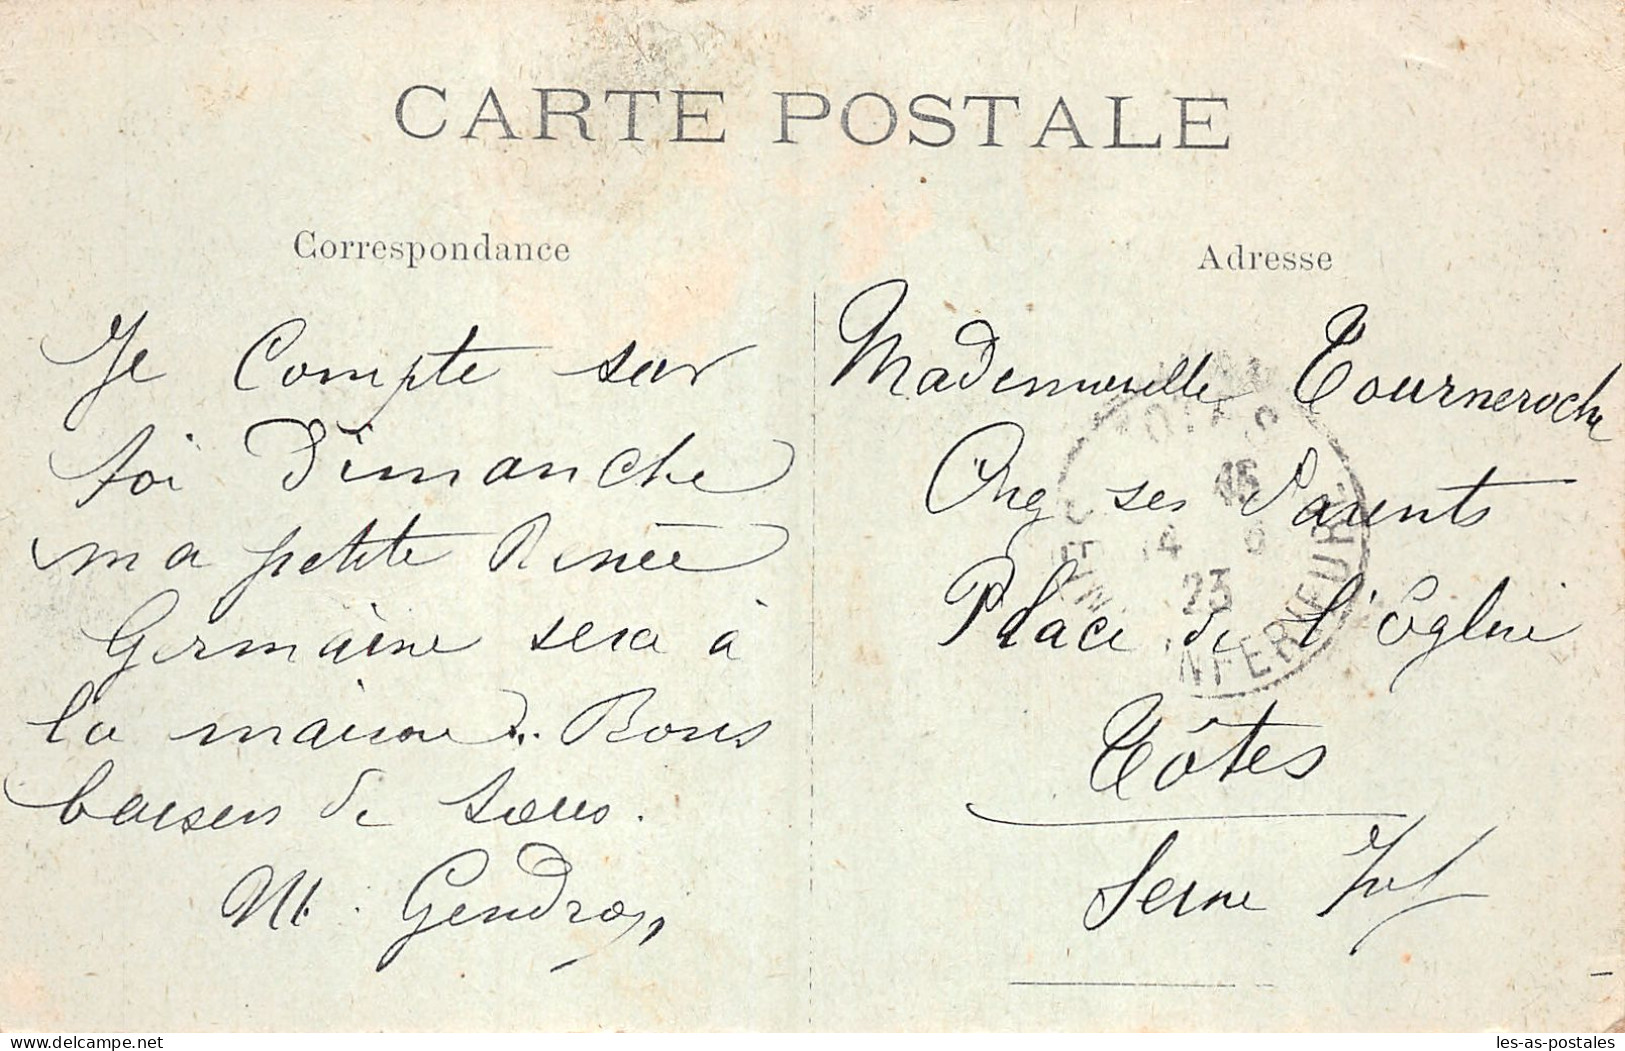 CARTE POSTALE
Correspondance
Je Compte sur
toi Dimanche
ma petite Renée
Germaine sera à
la maison. Bons
baisers de tous.
M. Gendron
Adresse
Mademoiselle Tourneroche
Chez ses Parents
Place de l'Eglise
Tôtes
Seine Inf
TOTES
15
14 6
23
SEINE INFERIEURE
les-as-postales
delcampe.net